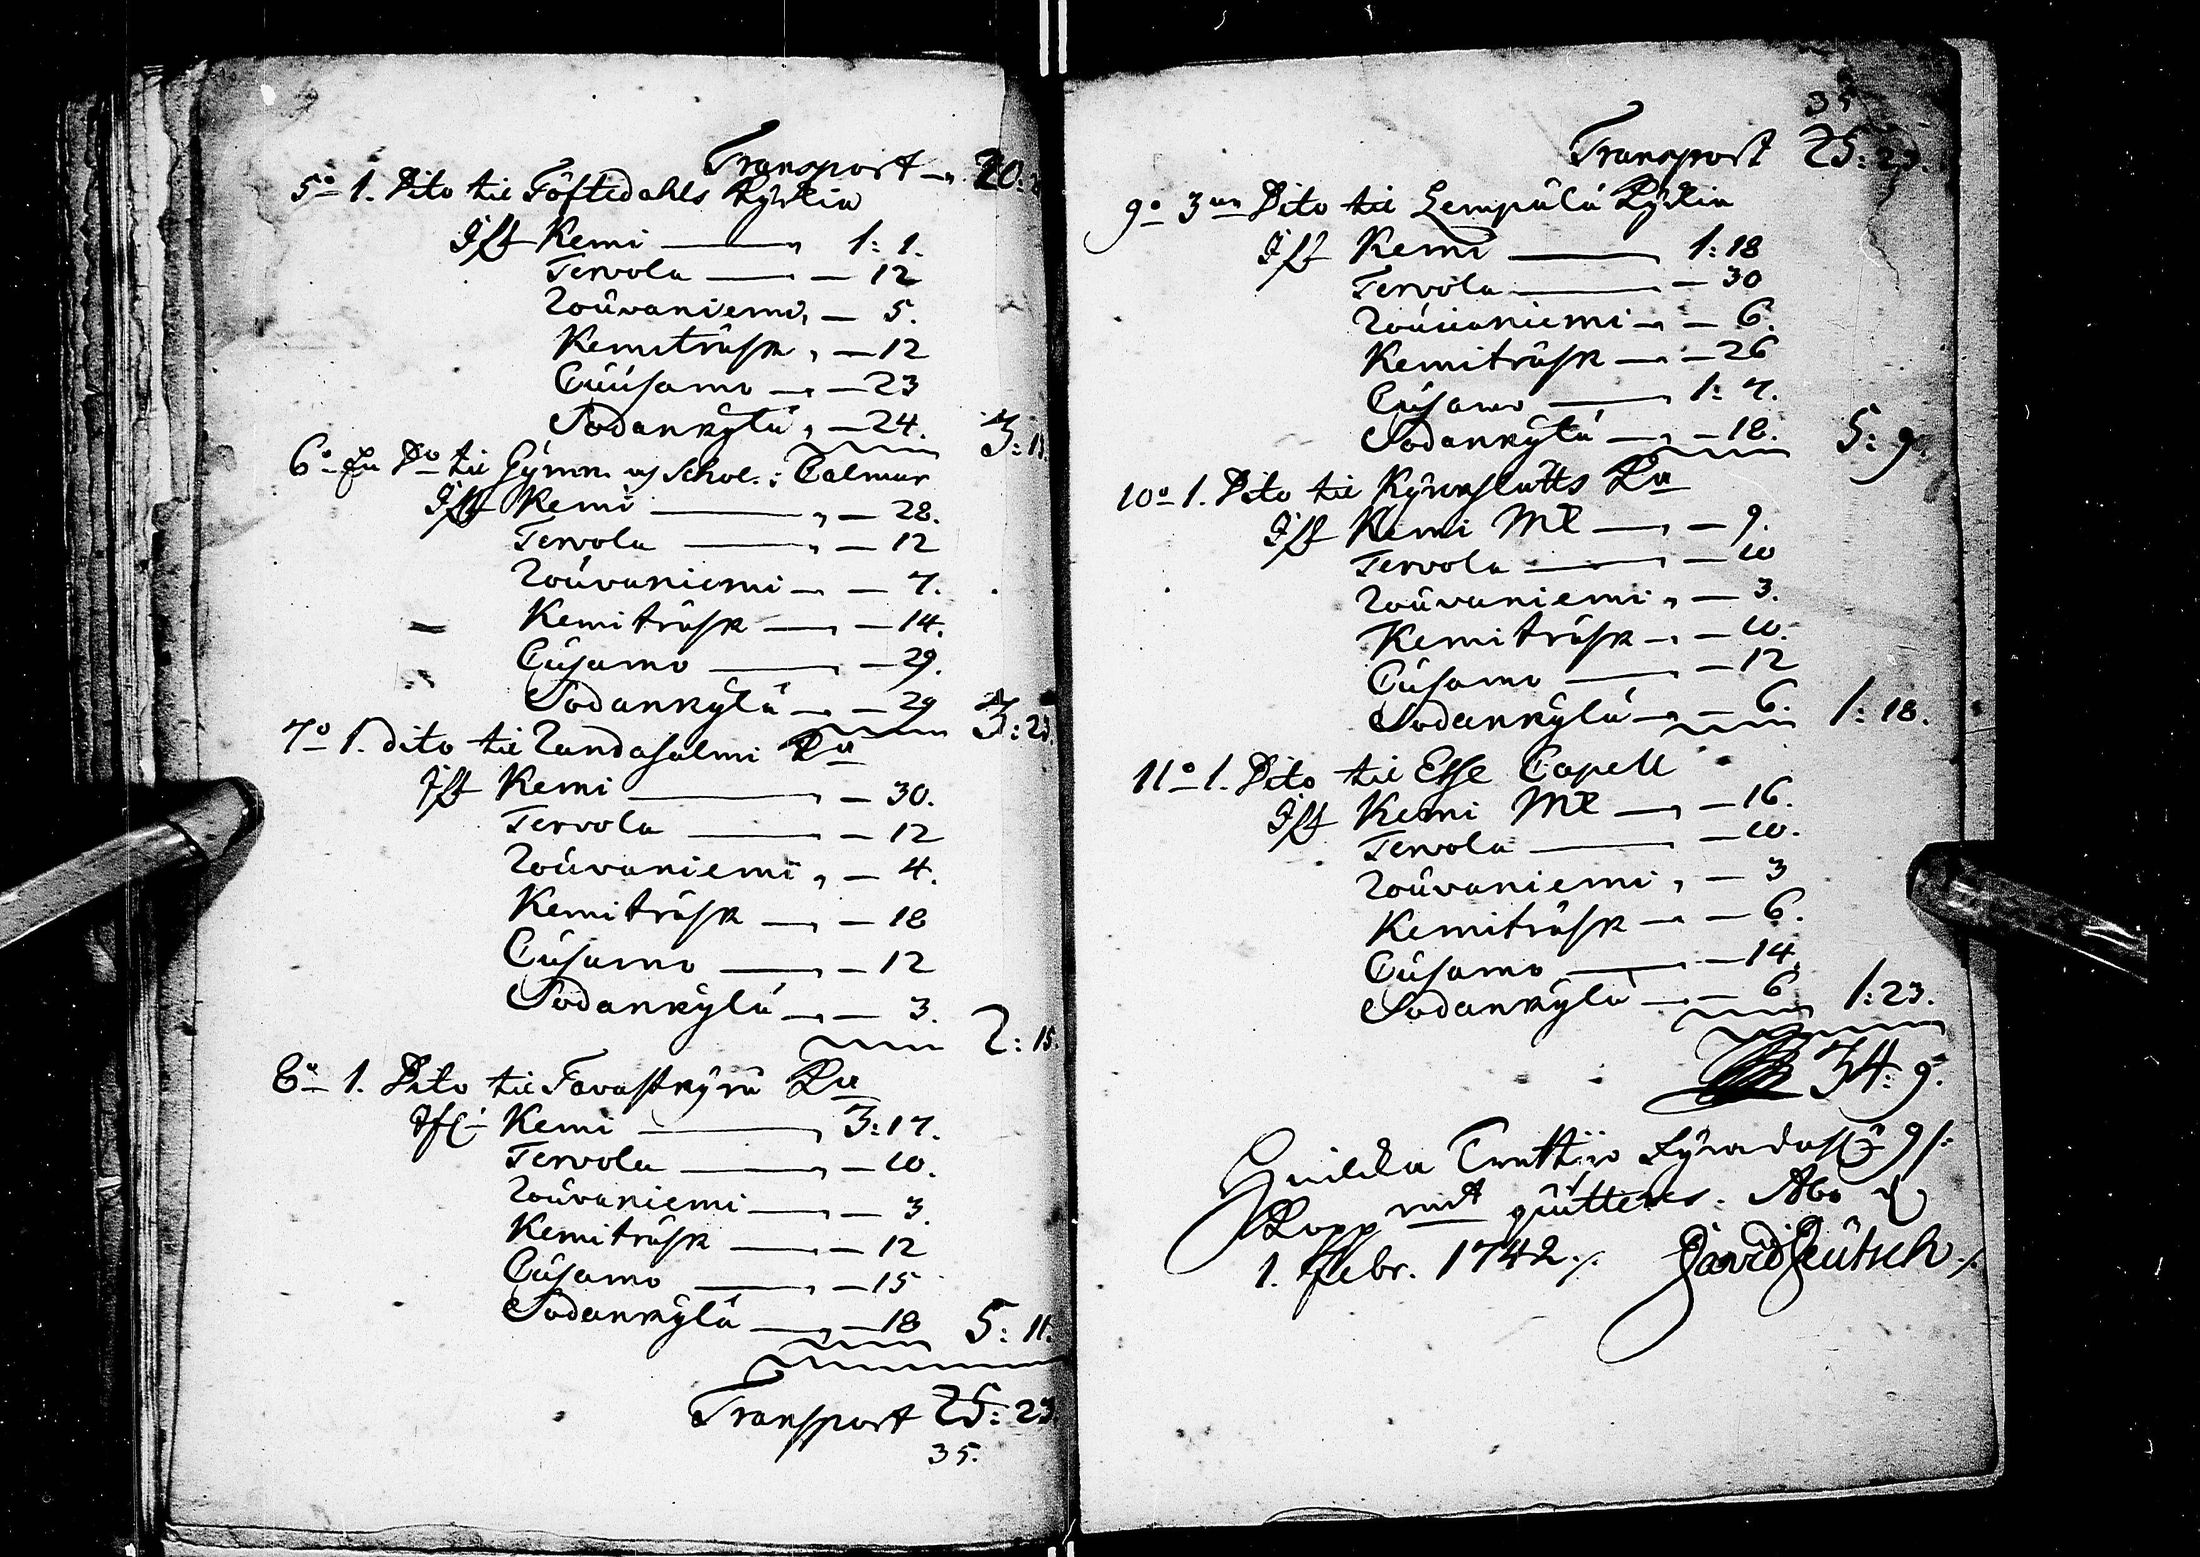 Transport 20:
5o 1. Dito til Töftedahls Kyrkia
Ifr Kemi 1: 1.
Tervola — 12
Rouvaniemi, — 5.
Kemiträsk, — 12
Cuusamo — 23
Sodankylä, — 24. 3: 13.
6o En Do til Gymn. og Schol. i Calmar
Ifr Kemi — 28.
Tervola — 12
Rouvaniemi — 7.
Kemiträsk — 14.
Cusamo — 29.
Sodankylä — 29 3: 23.
7o 1. dito til Randasalmi Kia
Ifr Kemi — 30.
Tervola — 12
Rouvaniemi, — 4.
Kemiträsk — 18
Cusamo — 12
Sodankylä — 3. 2: 15.
8o 1. Dito til Tavastkyrö Kia
Ifr Kemi 3: 17.
Tervola — 10.
Rouvaniemi — 3.
Kemiträsk — 12
Cusamo — 15
Sodankylä — 18 5: 11.
Transport 25: 23
35.
35
Transport 25: 23.
9o 3ne Dito til Lempälä Kyrkia
Ifr Kemi 1: 18
Tervola — 30
Rouvaniemi — 6.
Kemiträsk — 26
Cusamo 1: 7.
Sodankylä — 18. 5: 9.
10o 1. Dito til Kyrckslätts Kia
Ifr Kemi — 9.
Tervola — 10
Rouvaniemi, — 3.
Kemiträsk — 10.
Cusamo — 12
Sodankylä — 6. 1: 18.
11o 1. Dito til Esse Capell
Ifr Kemi — 16.
Tervola — 10.
Rouvaniemi, — 3
Kemiträsk — 6.
Cusamo — 14.
Sodankylä — 6. 1: 23.
34: 9.
Huilcka Trettijo fyra das 9 /:
Kopp mt quitteras. Åbo d
1. Febr. 1742 /. David Deutsch /.